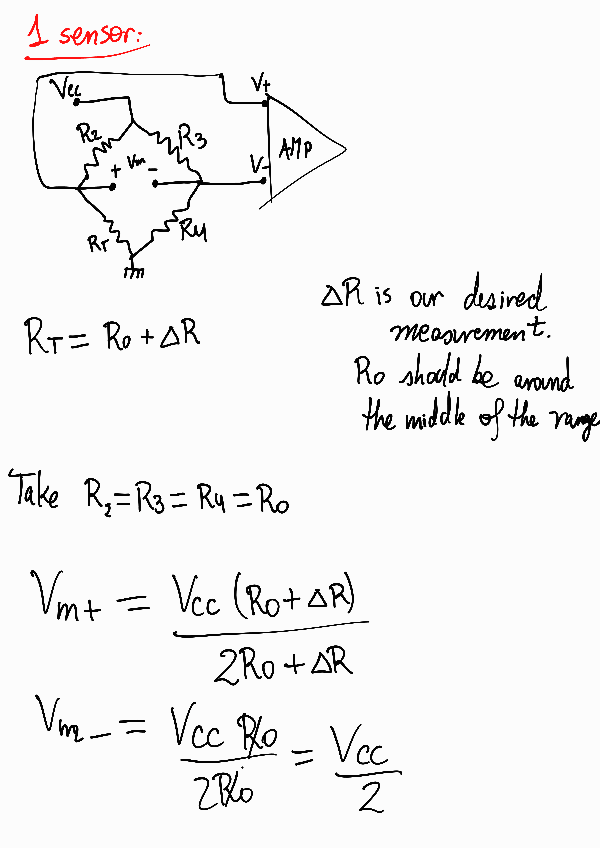 1 sensor:
Vcc
V+
R2
R3
+ Vm -
V-
AMP
RT
R4
ΔR is our desired
measurement.
RT = R0 + ΔR
R0 should be around
the middle of the range
Take R2 = R3 = R4 = R0
Vm+ = Vcc (R0 + ΔR)
2R0 + ΔR
Vm- = Vcc R0 = Vcc
2R0 2